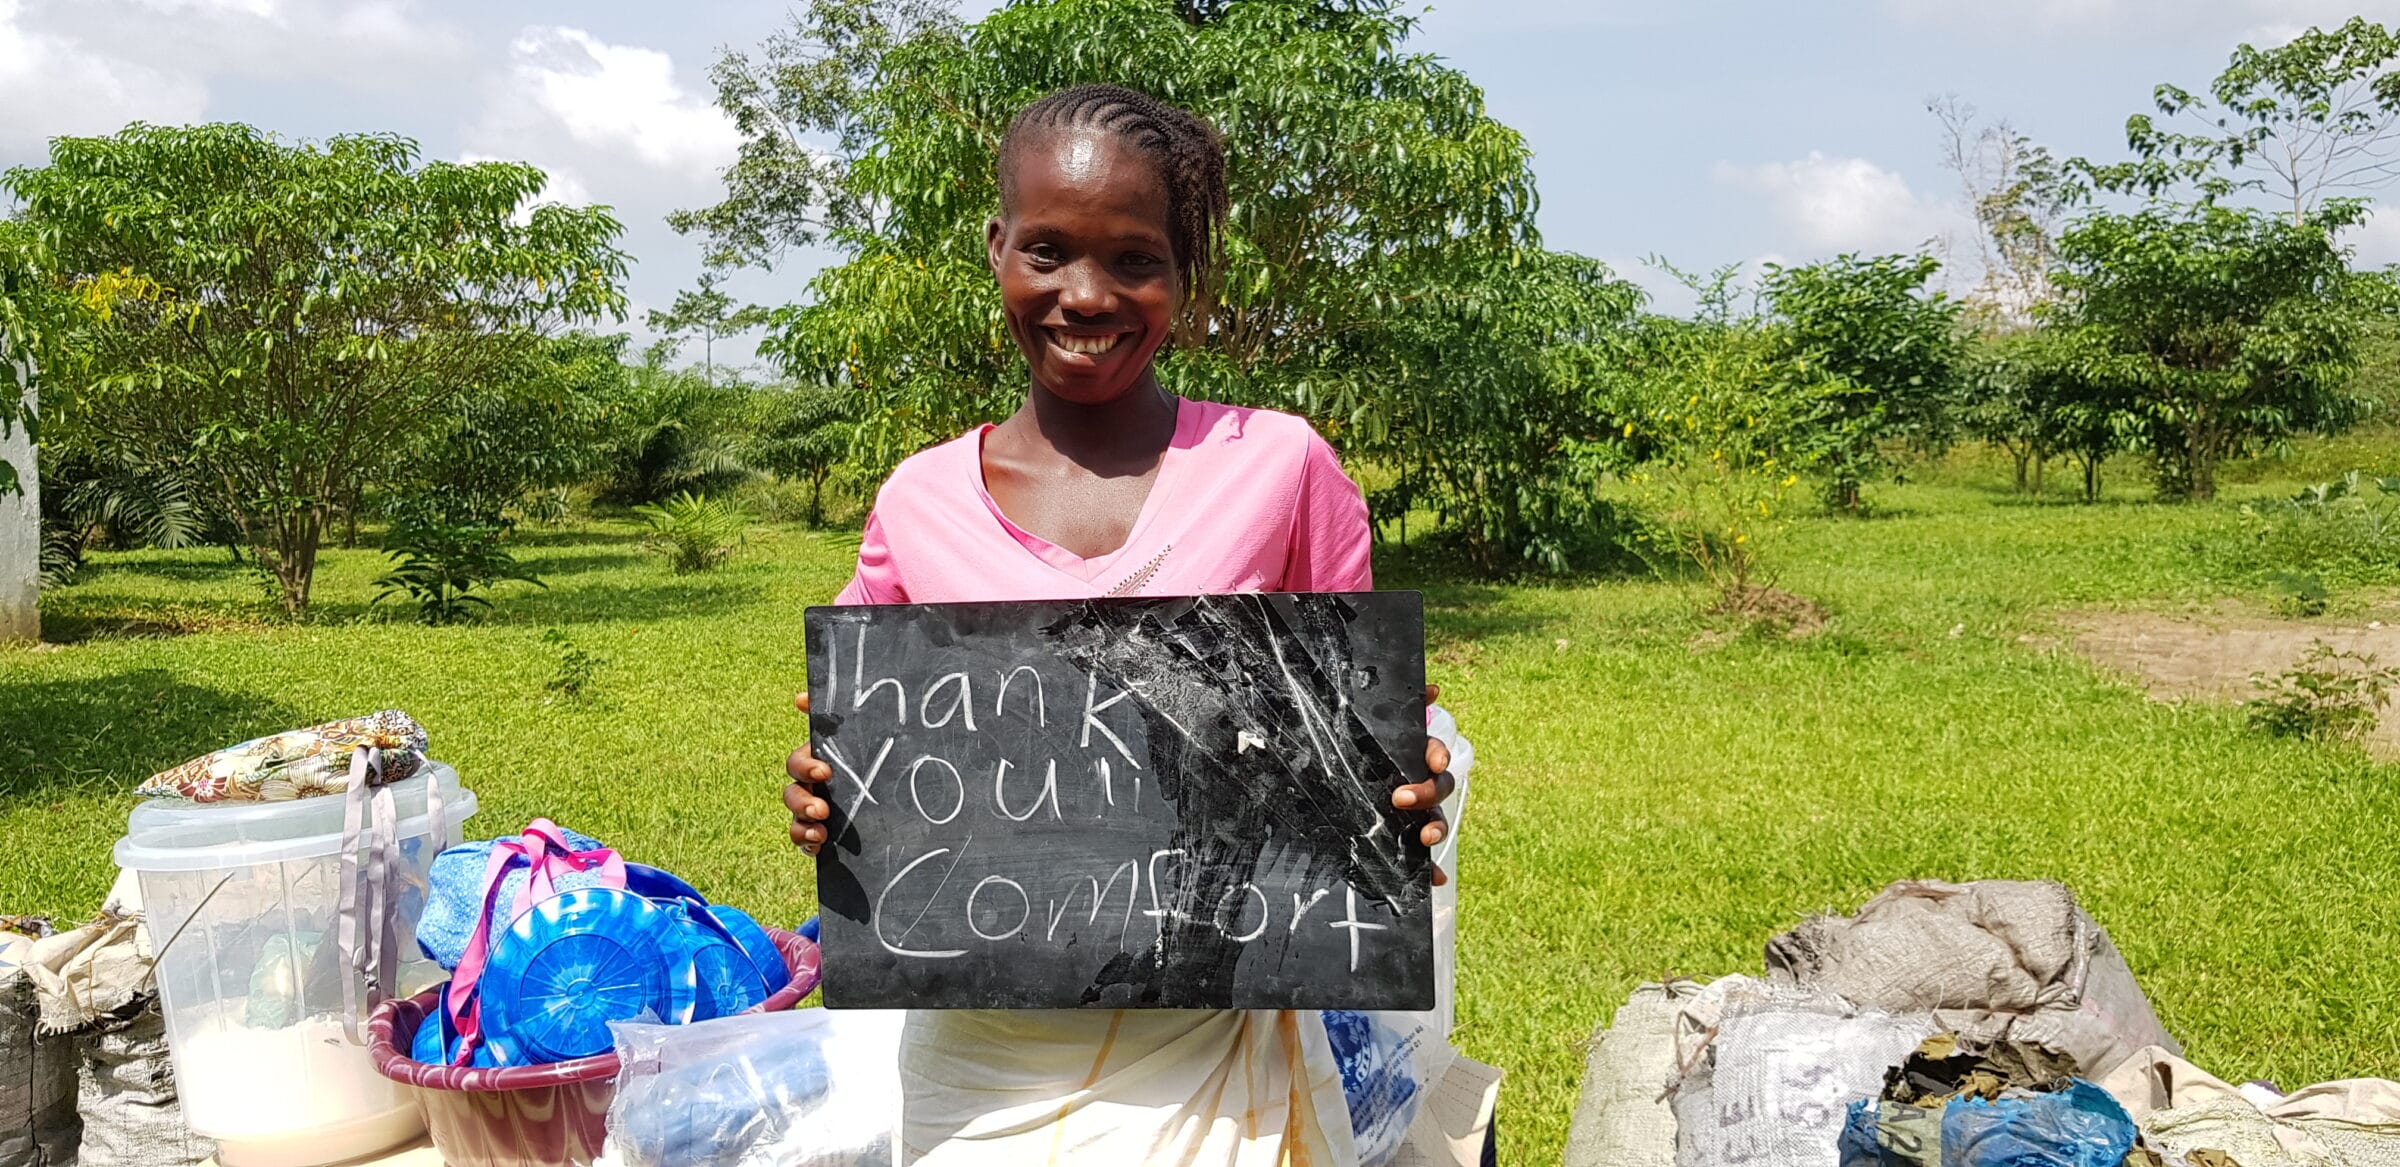 Thank
You
Comfort
A2